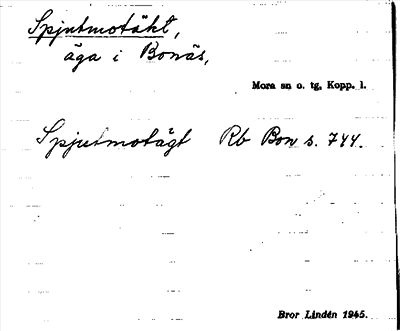 Spjutmotäkt,
äga i Bonäs,
Mora sn o. tg, Kopp. l.
Spjutmotägt Rb Bon s. 744.
Bror Lindén 1945.